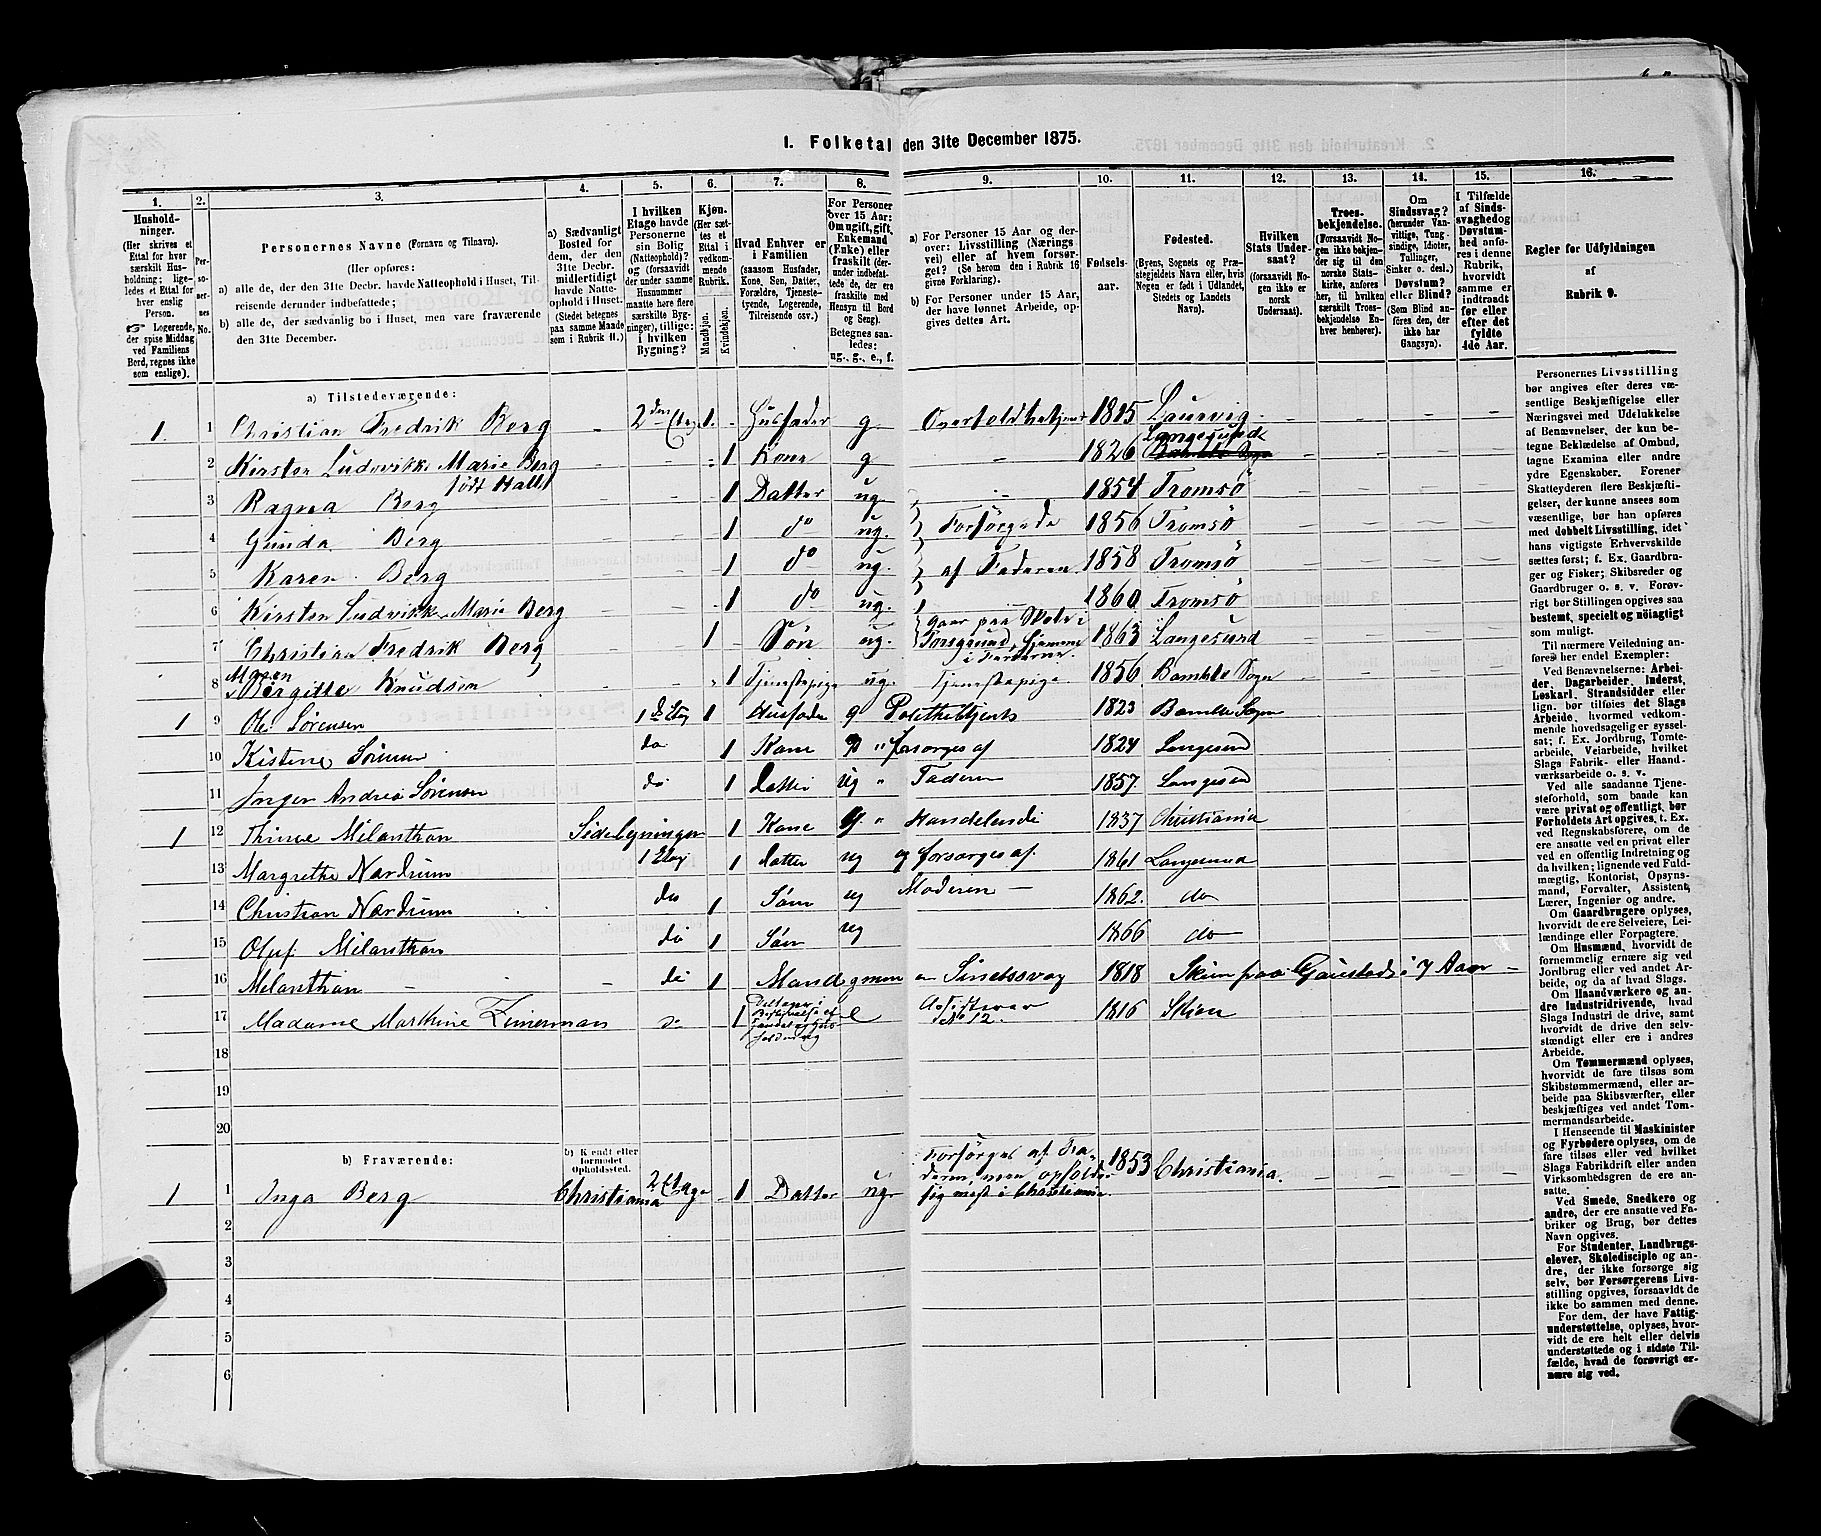 1. Folketal den 31te December 1875.
1. 2. 3. 4. 5. 6. 7. 8. 9. 10. 11. 12. 13. 14. 15. 16.
Hushold-
ninger.
(Her skrives et
Ettal for hver
særskilt Hus-
holdning; lige-
ledes et Ettal for
hver enslig
Person.
☞ Logerende,
der spise Middag
ved Familiens
Bord, regnes ikke
som enslige).
Per-
so-
ner-
nes
No.
Personernes Navne (Fornavn og Tilnavn).
(Her opføres:
a) alle de, der den 31te Decbr. havde Natteophold i Huset, Til-
reisende derunder indbefattede;
b) alle de, der sædvanlig bo i Huset, men vare fraværende
den 31te December.
a) Sædvanligt
Bosted for
dem, der den
31te Decbr.
midlertidigt
havde Natte-
ophold i Huset.
(Stedet betegnes
paa samme Maade
som i Rubrik 11.)
I hvilken
Etage havde
Personerne
sin Bolig
(Natteophold)?
og (forsaavidt
der under samme
Husnummer
maatte høre flere
særskilte Byg-
ninger), tillige:
i hvilken
Bygning?
Kjøn.
(Her sæt-
tes et
Ettal i
vedkom-
mende
Rubrik.
Mandkjøn.
Kvindekjøn.
Hvad Enhver er
i Familien
(saasom Husfader,
Kone, Søn, Datter,
Forældre, Tjeneste-
tyende, Logerende,
Tilreisende osv.)
For Personer
over 15 Aar:
Om ugift, gift,
Enkemand
(Enke) eller
fraskilt (der-
under indbefat-
tede de, der ere
fraskilte med
Hensyn til Bord
og Seng).
Betegnes saa-
ledes:
ug., g., e., f.
a) For Personer 15 Aar og der-
over: Livsstilling (Nærings
vei) eller af hvem forsør-
get? (Se herom den i Rubrik 16
givne Forklaring).
b) For Personer under 15 Aar,
der have lønnet Arbeide, op-
gives dettes Art.
Fødsels-
aar.
Fødested.
(Byens, Sognets og Præ-
stegjeldets Navn eller, hvis
Nogen er født i Udlandet,
Stedets og Landets
Navn).
Hvilken
Stats Under-
saat?
(forsaavidt No-
gen ikke er
norsk
Undersaat).
Troes-
bekjendelse.
(Forsaavidt No-
gen ikke bekjen-
der sig til den
norske Stats-
kirke, anføres
her, til hvilken
særskilt Troes-
bekjendelse En-
hver henhører).
Om
Sindssvag?
(herunder Van-
vittige, Tung-
sindige, Idioter,
Tullinger,
Sinker o. desl.)
Døvstum?
eller Blind?
(Som Blind an-
føres den, der
ikke har
Gangsyn).
I Tilfælde
af Sinds-
svaghed og
Døvstum-
hed anfø-
res i denne
Rubrik,
hvorvidt
samme er
indtraadt
før eller
efter det
fyldte
4de Aar.
Regler for Udfyldningen
af
Rubrik 9.
a) Tilstedeværende:
1. 1 Christian Fredrik Berg 2den Etag 1. Husfader g 1815 Laurvig
Langesund
2 Kirsten Ludovikke Marie Berg 1 Kone g 1826
født Hall
3 Ragna Berg 1 Datter ug 1854 Tromsö
4 Gunda Berg 1 do ug. Forsörgede 1856 Tromsö
5 Karen Berg 1 do ug. af Faderen 1858 Tromsö
6 Kirsten Ludvikke Marie Berg 1 do ug. 1860 Tromsö
Gaar paa Skole i
7 Christian Fredrik Berg 1 Sön ug. Porsgrund, hjemme 1863 Langesund
Maren
8 Birgitte Knudsen 1 Tjenestepige ug. Tjenestepige 1856 Bamble Sogn
1 9 Ole Sörensen 1 Etag 1 Husfader g Politibetjent 1823 Bamble Sogn
10 Kistine Sörensen do 1 Kone g forsorges af 1824 Langesund
11 Inger Andrea Sörensen do 1 datter ug Faderen 1857. Langesund
1 12 Thrine Milanthon Sidebygningen 1 Kone g. Handelende 1837 Christiania
13 Margrethe Nærdrum 1 Etag 1 datter ug og forsorges af 1861 Langesund
14 Christian Nærdrum do 1 Sön ug Moderen 1862. do
15 Oluf Milanthon do 1 Sön ug 1866 do
16 Melanthon do 1 Mand Sindssvag 1818 Skien paa Gaustad i 7 Aar
17 Madame Marthine Zimerman do 1 e 1816 Skien
18
19
20
b) Fraværende:
b) Kendt eller
formodet
Opholdssted.
Forsörges af Fa-
deren, men opholder
1 1 Inga Berg Christiania 2 Etage 1 Datter ug. sig mest i Christiania. 1853 Christiania.
2
3
4
5
6
Personernes Livsstilling
bør angives efter deres væ-
sentlige Beskjæftigelse eller
Næringsvei med Udelukkelse
af Benævnelser, der kun be-
tegne Beklædelse af Ombud,
tagne Examina eller andre
ydre Egenskaber. Forener
Skatteyderen flere Beskjæfti-
gelser, der kunne ansees som
væsentlige, bør han opføres
med dobbelt Livsstilling, idet
hans vigtigste Erhvervskilde
sættes først; f. Ex. Gaardbru-
ger og Fisker; Skibsreder og
Gaardbruger o. s. v. Forøv-
rigt bør Stillingen opgives saa
bestemt, specielt og nöiagtigt
som muligt.
Til nærmere Veiledning an-
føres her endel Exempler:
Ved Benævnelserne: Arbei-
der, Dagarbeider, Inderst,
Løskarl, Strandsidder eller
lign. bør tilføies det Slags
Arbeide, hvormed vedkom-
mende hovedsagelig er syssel-
sat; f. Ex. Jordbrug, Tomte-
arbeide, Veiarbeide, hvilket
Slags Fabrik- eller Haand-
værksarbeide o. s. v.
Ved alle saadanne Tjene-
steforhold, som baade kan
være privat og offentligt, bør
Forholdets Art opgives, t. Ex.
ved Regnskabsførere, om de
ere ansatte ved en privat eller
ved en offentlig Indretning og
da hvilken; lignende ved Fuld-
mægtig, Kontorist, Opsyns-
mand, Forvalter, Assistent,
Lærer, Ingeniør og andre.
Om Gaardbrugere oplyses,
hvorvidt de ere Selveiere, Lei-
lændinge eller Forpagtere.
Om Husmænd, hvorvidt de
fornemmelig ernære sig ved
Jordbrug eller ved andet Ar-
beide, og da af hvad Slags.
Om Haandværkere og an-
dre Industridrivende, hvad
Slags Industri de drive, samt
hvorvidt de drive den selv-
stændigt eller ere i andres
Arbeide.
Om Tømmermænd oplyses,
hvorvidt de fare tilsøs som
Skibstømmermænd, eller ar-
beide paa Skibsværfter, eller
beskjæftiges ved andet Tøm-
mermandsarbeide.
I Henseende til Maskinister
og Fyrbødere oplyses, om de
fare tilsøs eller ved hvilket
Slags Fabrikdrift eller anden
Virksomhedsgren de ere an-
satte.
Ved Smede, Snedkere og
andre, der ere ansatte ved Fa-
briker og Brug, bør dettes
Navn opgives.
For Studenter, Landbrugs-
elever, Skoledisciple og an-
dre, der ikke forsørge sig
selv, bør Forsørgerens Livs-
stilling opgives, forsaavidt de
ikke bo sammen med denne.
For dem, der have Fattig-
understøttelse, oplyses, hvor-
vidt de ere helt eller delvis
understøttede og i sidste Til-
fælde, hvad de forøvrigt er-
nære sig ved.